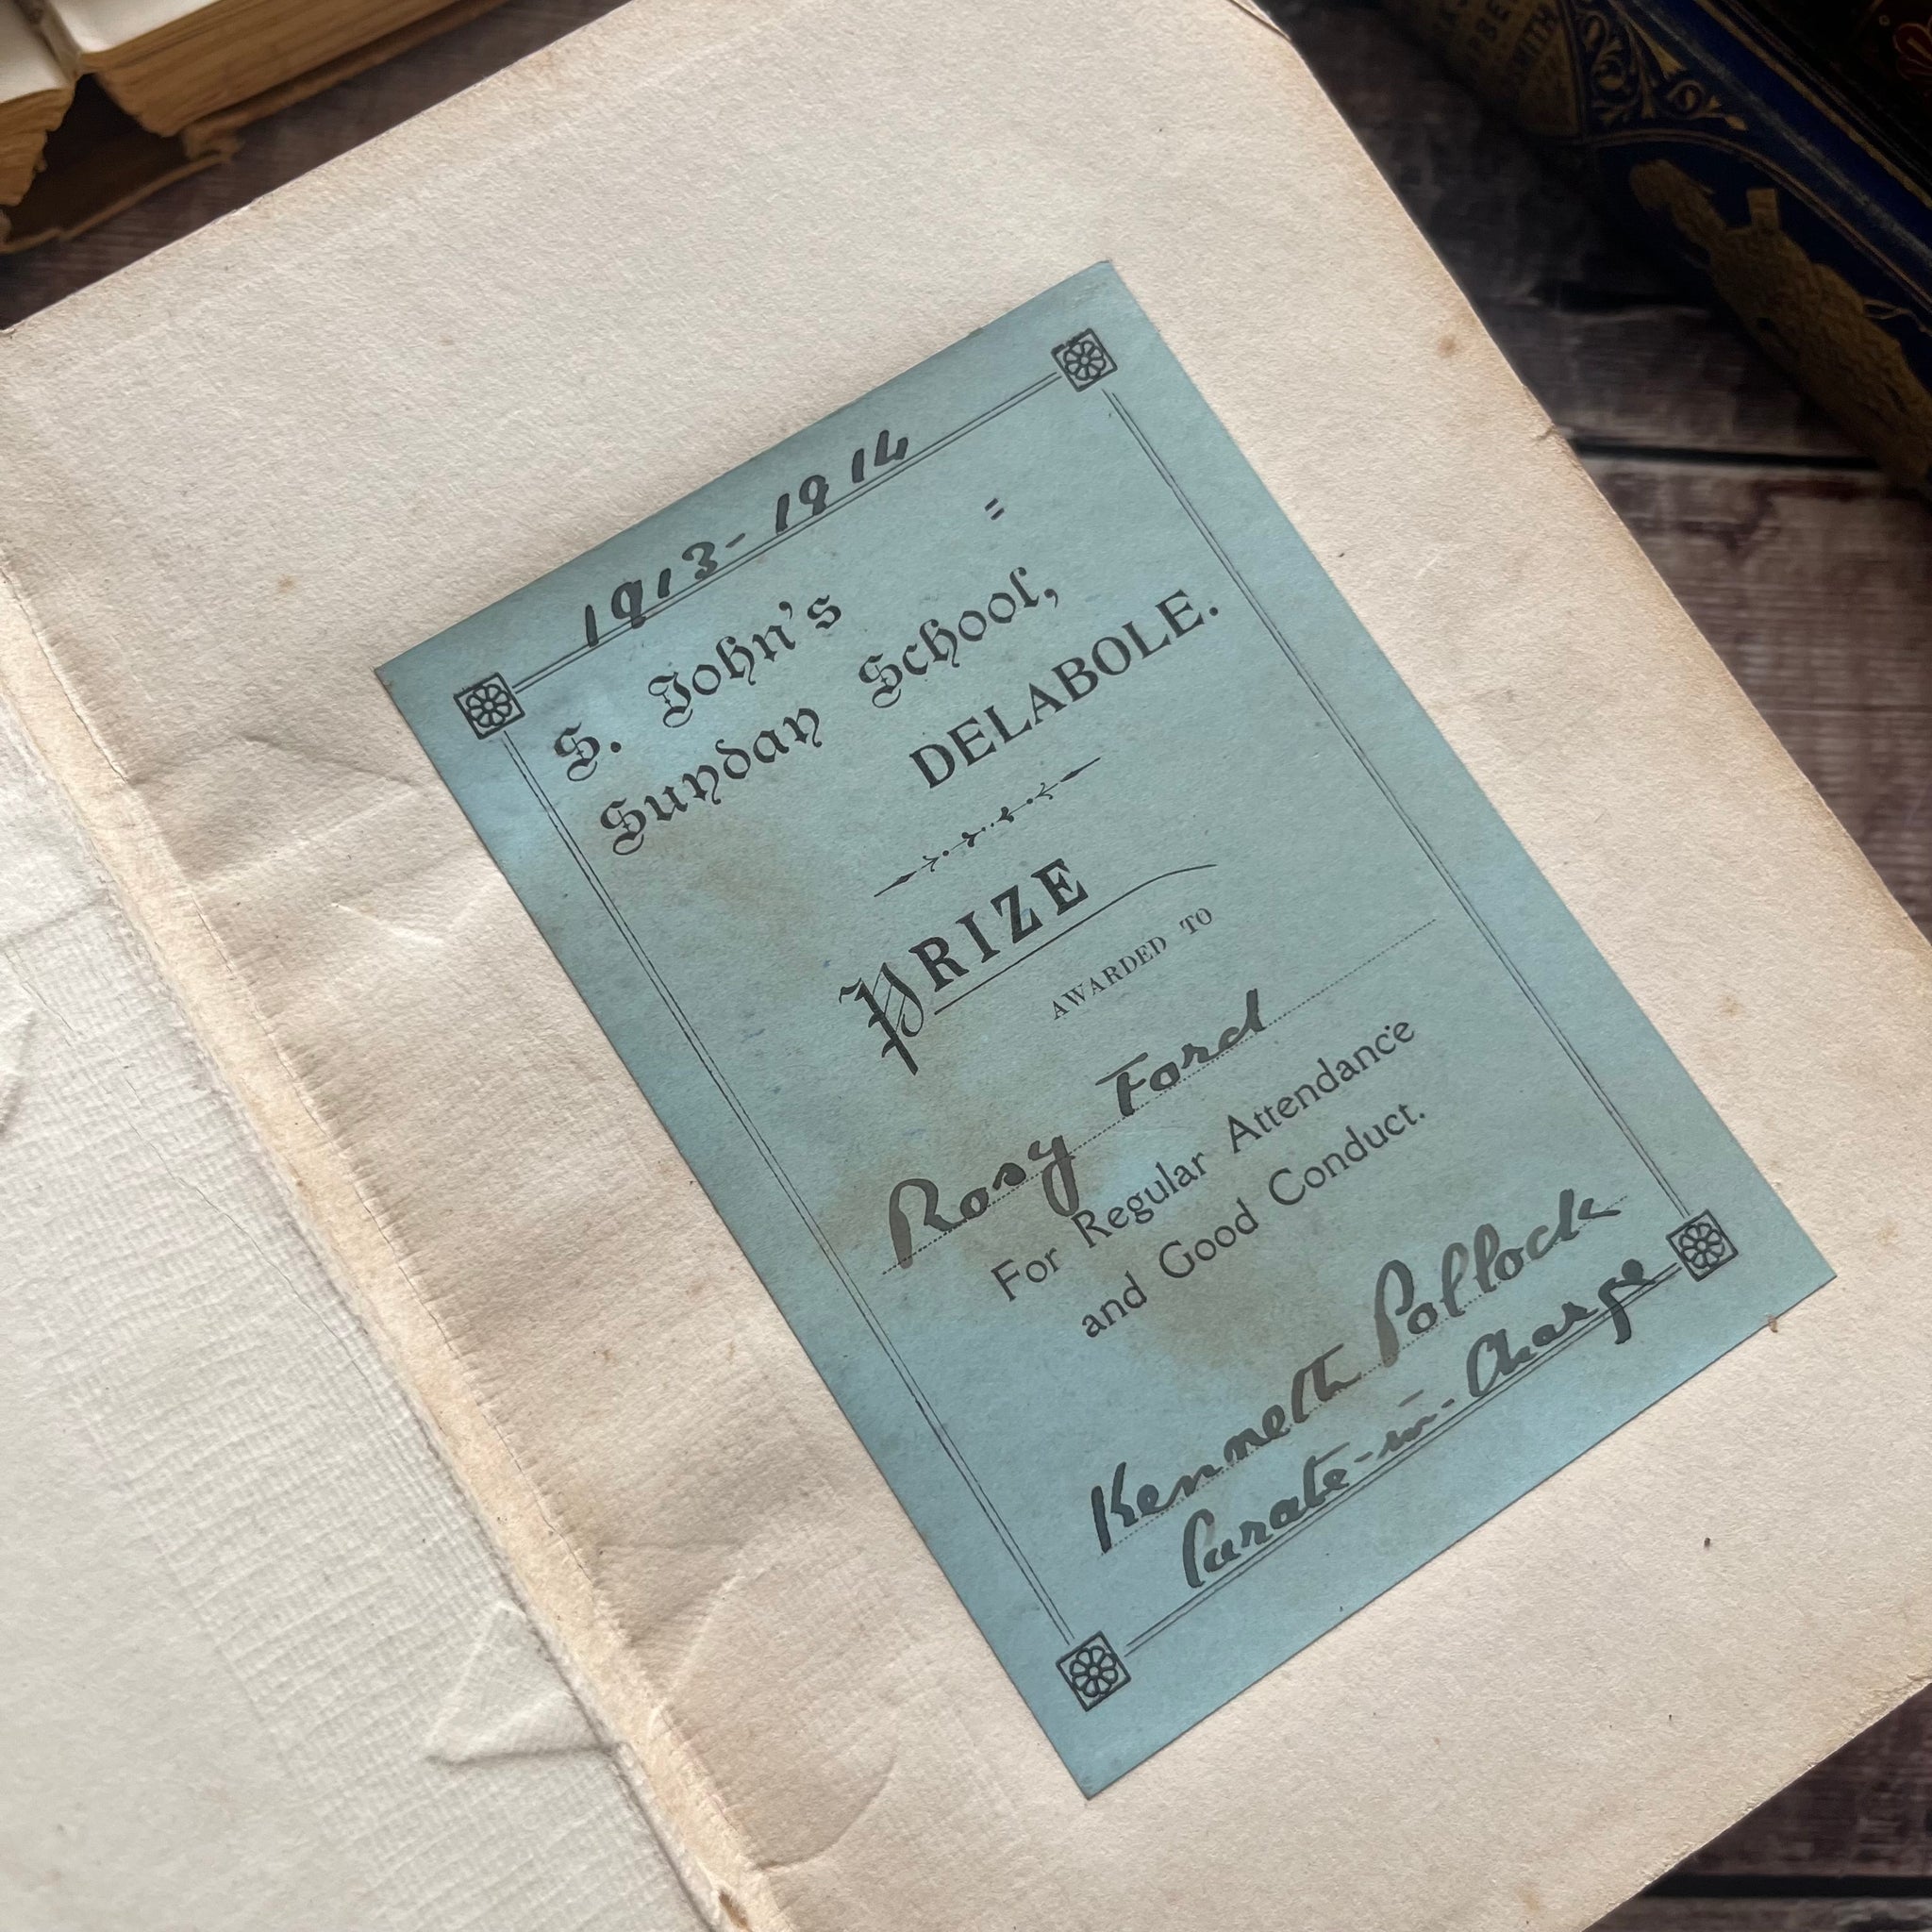 1913-1914
S. John's
Sunday School,
DELABOLE.
PRIZE
AWARDED TO
Rosy Ford
For Regular Attendance
and Good Conduct.
Kenneth Pollock
Curate-in-Charge